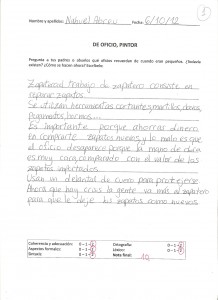 Nombre y apellidos: Nahuel Abreu Fecha: 6/10/12
5
DE OFICIO, PINTOR
Pregunta a tus padres o abuelos qué oficios recuerdan de cuando eran pequeños. ¿Todavía existen? ¿Cómo se hacían ahora? Escríbelo.
Zapatero: trabajo de zapatero consiste en
reparar zapatos.
Se utilizan herramientas cortantes, martillos, clavos,
pegamentos, hormas...
Es importante porque ahorras dinero
en comprarte zapatos nuevos y lo malo es que
el oficio desaparece porque la mano de obra
es muy cara, comparado con el valor de los
zapatos importados.
Usan un delantal de cuero para protejerse
Ahora que hay crisis la gente va más al zapatero
para que le deje los zapatos como nuevos.
Coherencia y adecuación: 0 – 1 – 2
Ortografía: 0 – 1 – 2
Aspectos formales: 0 – 1 – 2
Léxico: 0 – 1 – 2
Sintaxis: 0 – 1 – 2
Nota final: 10